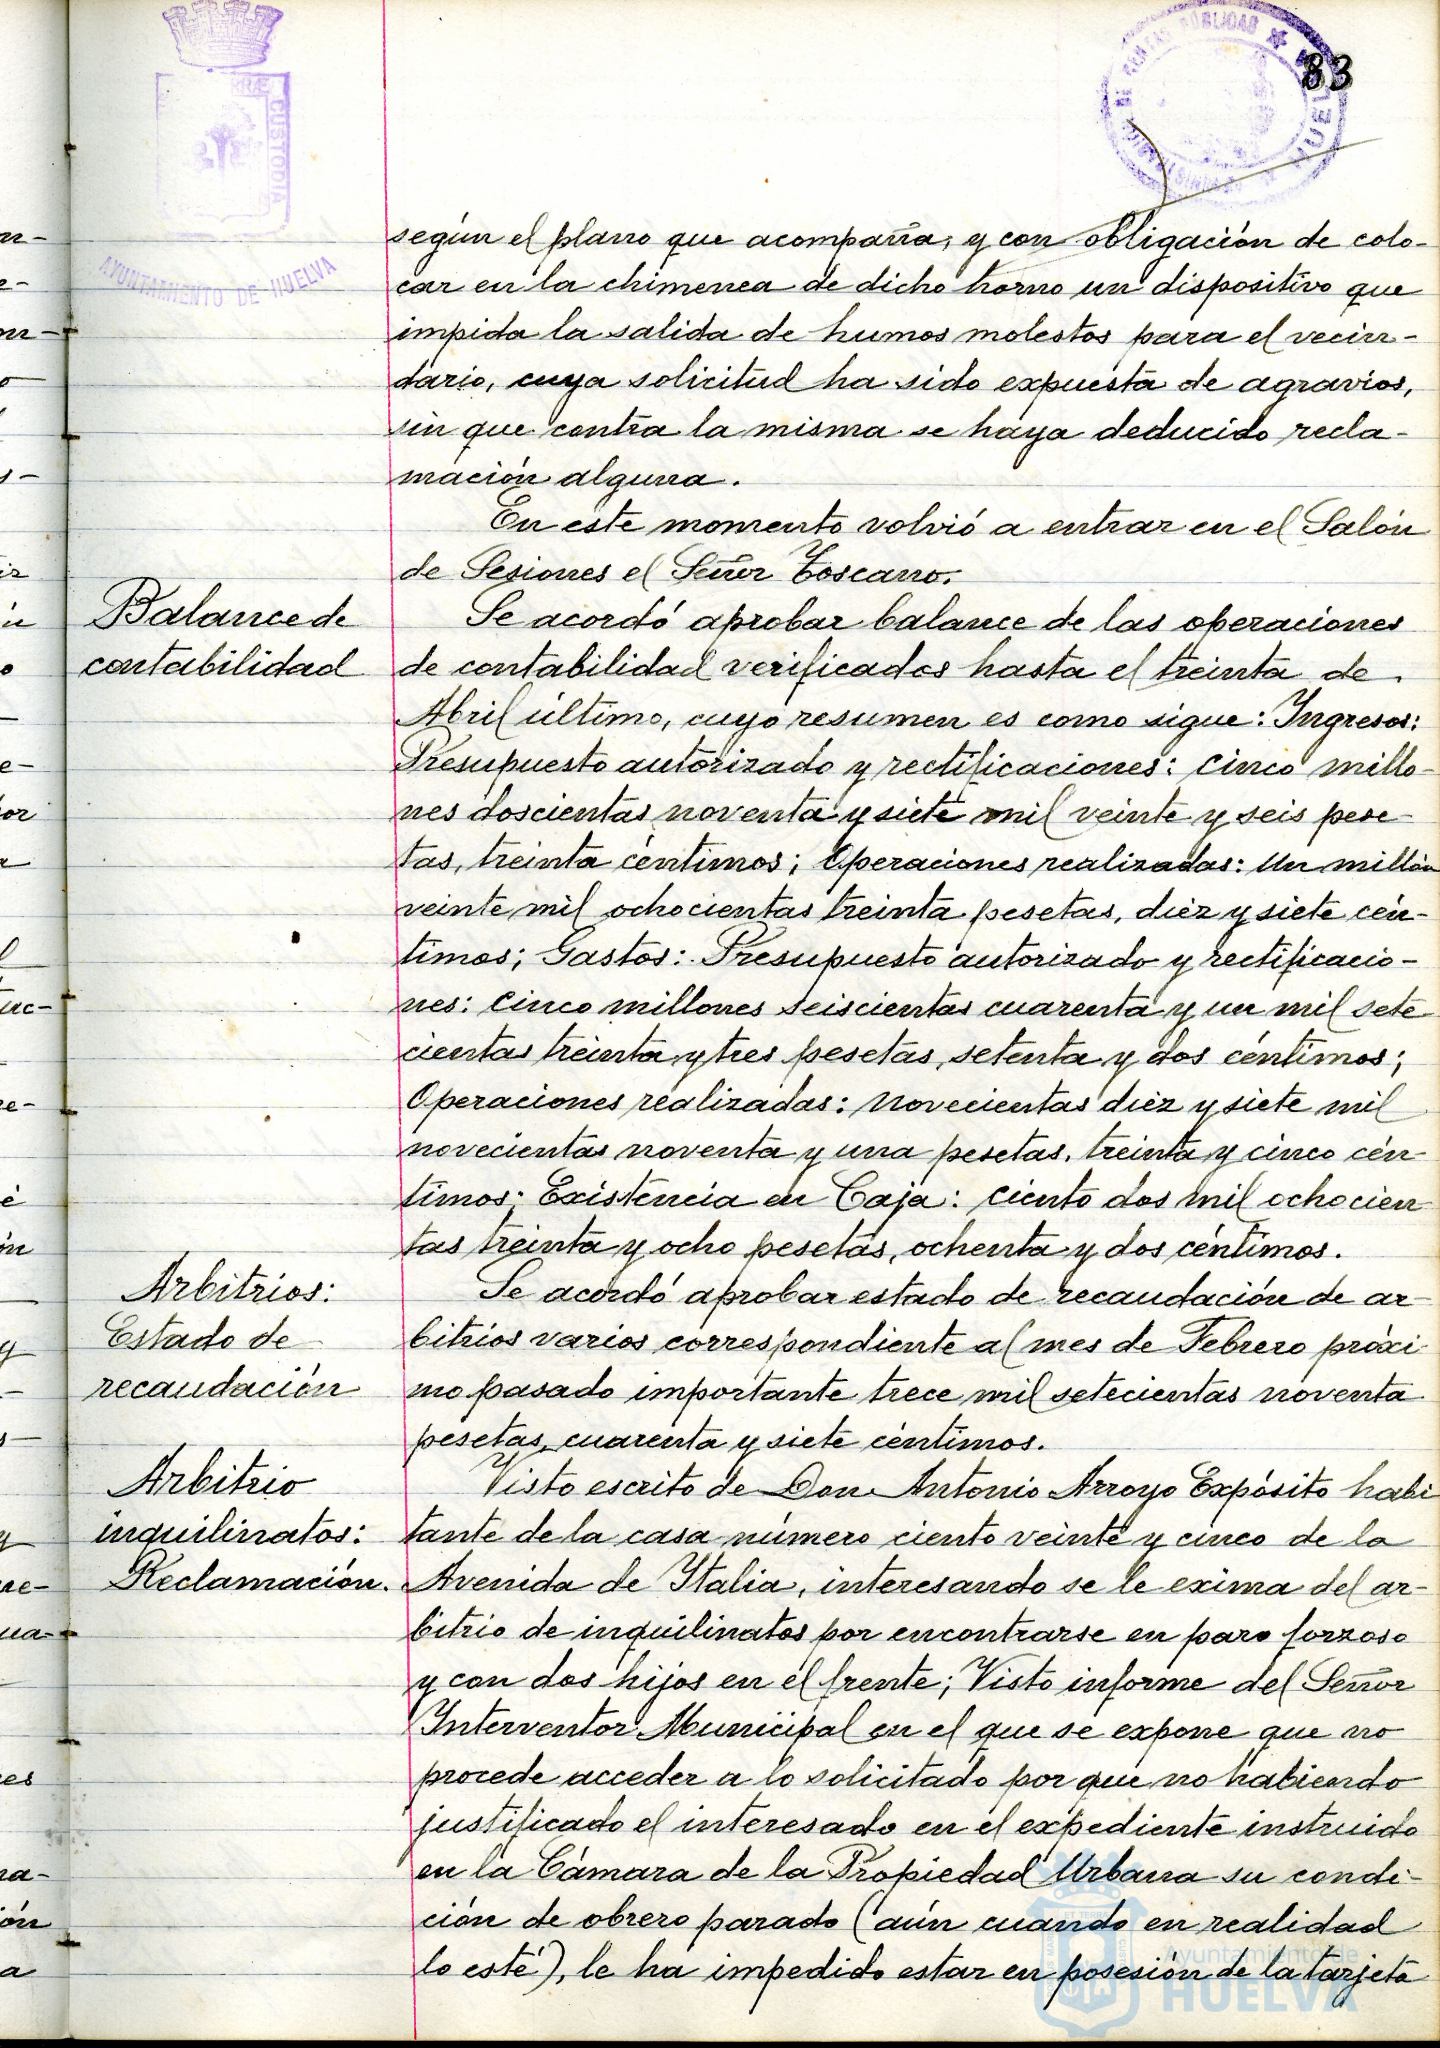 83
AYUNTAMIENTO DE HUELVA
CUSTODIA
según el plano que acompaña, y con obligación de colo-
car en la chimenea de dicho horno un dispositivo que
impida la salida de humos molestos para el vecin-
dario, cuya solicitud ha sido expuesta de agravios,
sin que contra la misma se haya deducido recla-
mación alguna.
En este momento volvió a entrar en el Salón
de Sesiones el Señor Toscano.
Balance de
contabilidad
Se acordó aprobar balance de las operaciones
de contabilidad verificados hasta el treinta de
Abril último, cuyo resumen es como sigue: Ingresos:
Presupuesto autorizado y rectificaciones: cinco millo-
nes doscientas noventa y siete mil veinte y seis pese-
tas, treinta céntimos; Operaciones realizadas: Un millón
veinte mil ochocientas treinta pesetas, diez y siete cén-
timos; Gastos: Presupuesto autorizado y rectificacio-
nes: cinco millones seiscientas cuarenta y un mil sete
cientas treinta y tres pesetas, setenta y dos céntimos;
Operaciones realizadas: Novecientas diez y siete mil
novecientas noventa y una pesetas, treinta y cinco cén
timos; Existencia en Caja: ciento dos mil ochocien
tas treinta y ocho pesetas, ochenta y dos céntimos.
Arbitrios:
Estado de
recaudación
Se acordó aprobar estado de recaudación de ar-
bitrios varios correspondiente al mes de Febrero próxi
mo pasado importante trece mil setecientas noventa
pesetas, cuarenta y siete céntimos.
Arbitrio
inquilinatos:
Reclamación.
Visto escrito de Don Antonio Arroyo Expósito habi
tante de la casa número ciento veinte y cinco de la
Avenida de Italia, interesando se le exima del ar-
bitrio de inquilinatos por encontrarse en paro forzoso
y con dos hijos en el frente; Visto informe del Señor
Interventor Municipal en el que se expone que no
procede acceder a lo solicitado por que no habiendo
justificado el interesado en el expediente instruido
en la Cámara de la Propiedad Urbana su condi-
ción de obrero parado (aún cuando en realidad
lo esté), le ha impedido estar en posesión de la tarjeta
Ayuntamiento de
HUELVA